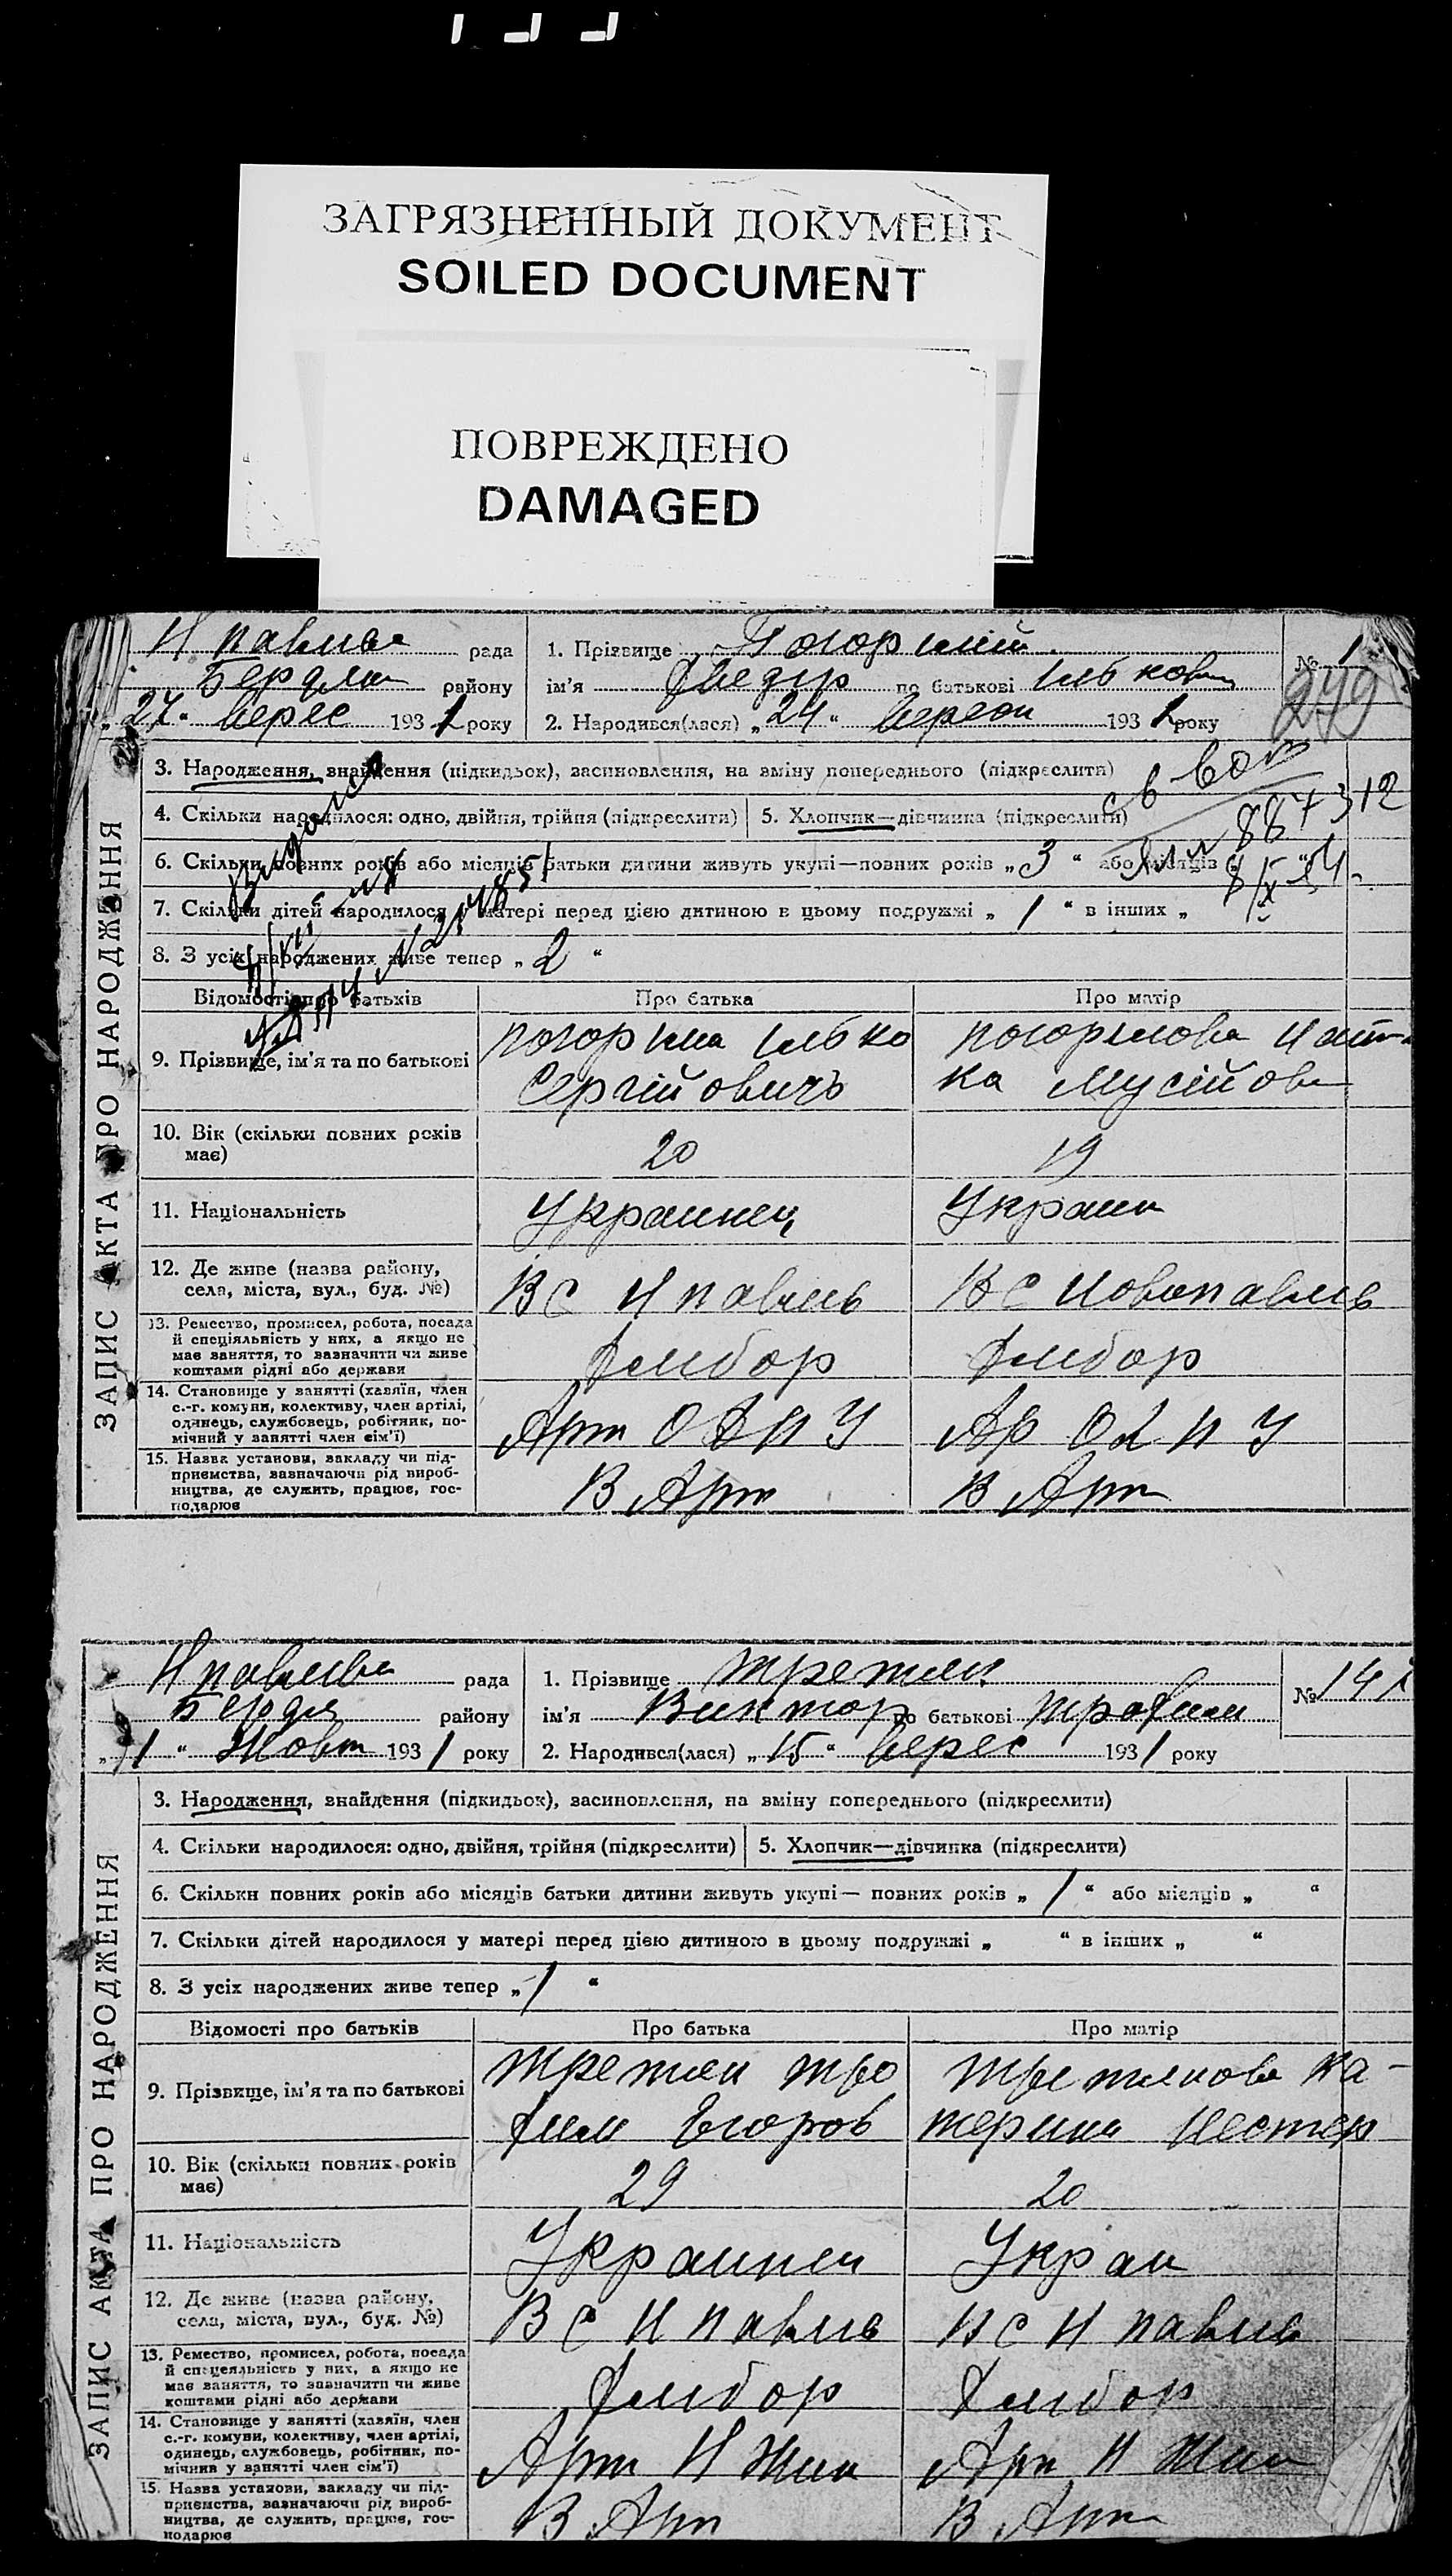 ЗАГРЯЗНЕННЫЙ ДОКУМЕНТ
SOILED DOCUMENT
ПОВРЕЖДЕНО
DAMAGED
рада
району
193 1 року
1. Прізвище
№ 1
ім'я Фведір по батькові
2. Народився(лася) „24“ 193 1 року
279
ЗАПИС АКТА ПРО НАРОДЖЕННЯ
3. Народження, знайдення (підкидьок), засиновлення, на зміну попереднього (підкреслити)
4. Скільки народилося: одно, двійня, трійня (підкреслити)
5. Хлопчик—дівчинка (підкреслити)
6. Скільки повних років або місяців батьки дитини живуть укупі—повних років „3“ або місяців
7. Скільки дітей народилося у матері перед цією дитиною в цьому подружжі „1“ в інших „
8. З усіх народжених живе тепер „2“
Відомості про батьків
Про батька
Про матір
9. Прізвище, ім'я та по батькові
Сергійовичъ
10. Вік (скільки повних років має)
20
19
11. Національність
Украинец
Украин
12. Де живе (назва району, села, міста, вул., буд. №)
В С Н павлів
В С Новопавлів
13. Ремество, промисел, робота, посада
й спеціяльність у них, а якщо не
має заняття, то зазначити чи живе
коштами рідні або держави
Хлибор
Хлибор
14. Становище у занятті (хазяїн, член
с.-г. комуни, колективу, член артілі,
одинець, службовець, робітник, по-
мічний у занятті член сім'ї)
15. Назва установи, закладу чи під-
приємства, зазначаючи рід вироб-
ництва, де служить, працює, гос-
подарює
В Арт
В Арт
рада
Бердя району
„1“ Жовт 193 1 року
1. Прізвище Третяк
№ 141
ім'я Виктор по батькові Трофим
2. Народився(лася) „15“ Верес 193 1 року
ЗАПИС АКТА ПРО НАРОДЖЕННЯ
3. Народження, знайдення (підкидьок), засиновлення, на зміну попереднього (підкреслити)
4. Скільки народилося: одно, двійня, трійня (підкреслити)
5. Хлопчик—дівчинка (підкреслити)
6. Скільки повних років або місяців батьки дитини живуть укупі— повних років „1“ або місяців „ “
7. Скільки дітей народилося у матері перед цією дитиною в цьому подружжі „ “ в інших „ “
8. З усіх народжених живе тепер „1“
Відомості про батьків
Про батька
Про матір
9. Прізвище, ім'я та по батькові
Третяк Тро
фим Егоров
Третякова Ка-
терина Нестер
10. Вік (скільки повних років має)
29
20
11. Національність
Украинец
Украи
12. Де живе (назва району, села, міста, вул., буд. №)
В С Н павлів
В С Н павлів
13. Ремество, промисел, робота, посада
й спецеяльність у них, а якщо не
має заняття, то зазначити чи живе
коштами рідні або держави
Хлибор
Хлибор
14. Становище у занятті (хазяїн, член
с.-г. комуни, колективу, член артілі,
одинець, службовець, робітник, по-
мічний у занятті член сім'ї)
15. Назва установи, закладу чи під-
приємства, зазначаючи рід вироб-
ництва, де служить, працює, гос-
подарює
В Арт
В Арт